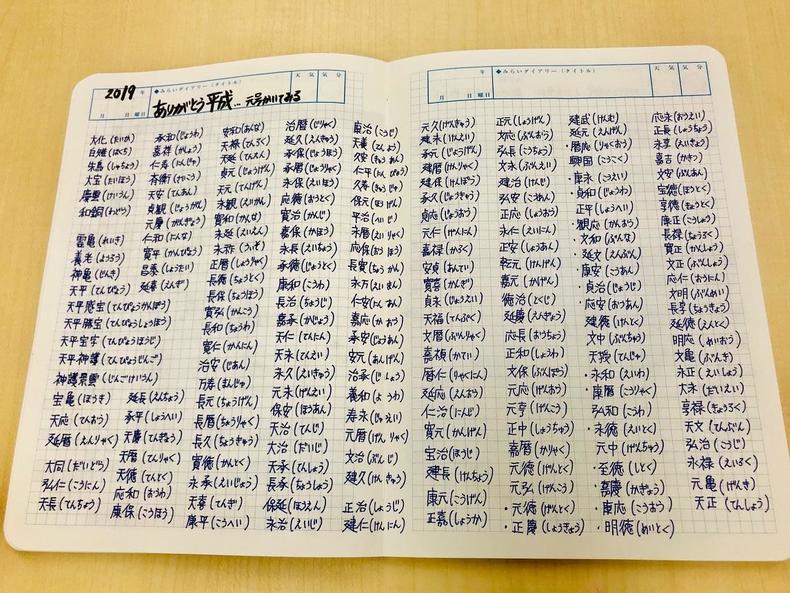 2019 年
月 日 曜日
◆みらいダイアリー(タイトル)
天気 気分
ありがとう平成… 元号かいてみる
大化(たいか)
白雉(はくち)
朱鳥(しゅちょう)
大宝(たいほう)
慶雲(けいうん)
和銅(わどう)
霊亀(れいき)
養老(ようろう)
神亀(じんき)
天平(てんぴょう)
天平感宝(てんぴょうかんぽう)
天平勝宝(てんぴょうしょうほう)
天平宝字(てんぴょうほうじ)
天平神護(てんぴょうじんご)
神護景雲(じんごけいうん)
宝亀(ほうき)
天応(てんおう)
延暦(えんりゃく)
大同(だいどう)
弘仁(こうにん)
天長(てんちょう)
承和(じょうわ)
嘉祥(かしょう)
仁寿(にんじゅ)
斉衡(さいこう)
天安(てんあん)
貞観(じょうがん)
元慶(がんぎょう)
仁和(にんな)
寛平(かんぴょう)
昌泰(しょうたい)
延喜(えんぎ)
延長(えんちょう)
承平(しょうへい)
天慶(てんぎょう)
天暦(てんりゃく)
天徳(てんとく)
応和(おうわ)
康保(こうほう)
安和(あんな)
天禄(てんろく)
天延(てんえん)
貞元(じょうげん)
天元(てんげん)
永観(えいかん)
寛和(かんな)
永延(えいえん)
永祚(えいそ)
正暦(しょうりゃく)
長徳(ちょうとく)
長保(ちょうほう)
寛弘(かんこう)
長和(ちょうわ)
寛仁(かんにん)
治安(じあん)
万寿(まんじゅ)
長元(ちょうげん)
長暦(ちょうりゃく)
長久(ちょうきゅう)
寛徳(かんとく)
永承(えいじょう)
天喜(てんぎ)
康平(こうへい)
治暦(じりゃく)
延久(えんきゅう)
承保(じょうほう)
承暦(じょうりゃく)
永保(えいほう)
応徳(おうとく)
寛治(かんじ)
嘉保(かほう)
永長(えいちょう)
承徳(じょうとく)
康和(こうわ)
長治(ちょうじ)
嘉承(かじょう)
天仁(てんにん)
天永(てんえい)
永久(えいきゅう)
元永(げんえい)
保安(ほうあん)
天治(てんじ)
大治(だいじ)
天承(てんしょう)
長承(ちょうしょう)
保延(ほうえん)
永治(えいじ)
康治(こうじ)
天養(てんよう)
久安(きゅうあん)
仁平(にんぴょう)
久寿(きゅうじゅ)
保元(ほうげん)
平治(へいじ)
永暦(えいりゃく)
応保(おうほう)
長寛(ちょうかん)
永万(えいまん)
仁安(にんあん)
嘉応(かおう)
承安(じょうあん)
安元(あんげん)
治承(じしょう)
養和(ようわ)
寿永(じゅえい)
元暦(げんりゃく)
文治(ぶんじ)
建久(けんきゅう)
正治(しょうじ)
建仁(けんにん)
年
月 日 曜日
◆みらいダイアリー(タイトル)
天気 気分
元久(げんきゅう)
建永(けんえい)
承元(じょうげん)
建暦(けんりゃく)
建保(けんぽう)
承久(じょうきゅう)
貞応(じょうおう)
元仁(げんにん)
嘉禄(かろく)
安貞(あんてい)
寛喜(かんぎ)
貞永(じょうえい)
天福(てんぷく)
文暦(ぶんりゃく)
嘉禎(かてい)
暦仁(りゃくにん)
延応(えんおう)
仁治(にんじ)
寛元(かんげん)
宝治(ほうじ)
建長(けんちょう)
康元(こうげん)
正嘉(しょうか)
正元(しょうげん)
文応(ぶんおう)
弘長(こうちょう)
文永(ぶんえい)
建治(けんじ)
弘安(こうあん)
正応(しょうおう)
永仁(えいにん)
正安(しょうあん)
乾元(けんげん)
嘉元(かげん)
徳治(とくじ)
延慶(えんきょう)
応長(おうちょう)
正和(しょうわ)
文保(ぶんぽう)
元応(げんおう)
元亨(げんこう)
正中(しょうちゅう)
嘉暦(かりゃく)
元徳(げんとく)
元弘(げんこう)
・元徳(げんとく)
・正慶(しょうきょう)
建武(けんむ)
延元(えんげん)
・暦応(りゃくおう)
興国(こうこく)
・康永(こうえい)
・貞和(じょうわ)
正平(しょうへい)
・観応(かんおう)
・文和(ぶんな)
・延文(えんぶん)
・康安(こうあん)
・貞治(じょうじ)
・応安(おうあん)
建徳(けんとく)
文中(ぶんちゅう)
天授(てんじゅ)
・永和(えいわ)
・康暦(こうりゃく)
弘和(こうわ)
・永徳(えいとく)
元中(げんちゅう)
・至徳(しとく)
・嘉慶(かきょう)
・康応(こうおう)
・明徳(めいとく)
応永(おうえい)
正長(しょうちょう)
永享(えいきょう)
嘉吉(かきつ)
文安(ぶんあん)
宝徳(ほうとく)
享徳(きょうとく)
康正(こうしょう)
長禄(ちょうろく)
寛正(かんしょう)
文正(ぶんしょう)
応仁(おうにん)
文明(ぶんめい)
長享(ちょうきょう)
延徳(えんとく)
明応(めいおう)
文亀(ぶんき)
永正(えいしょう)
大永(だいえい)
享禄(きょうろく)
天文(てんぶん)
弘治(こうじ)
永禄(えいろく)
元亀(げんき)
天正(てんしょう)